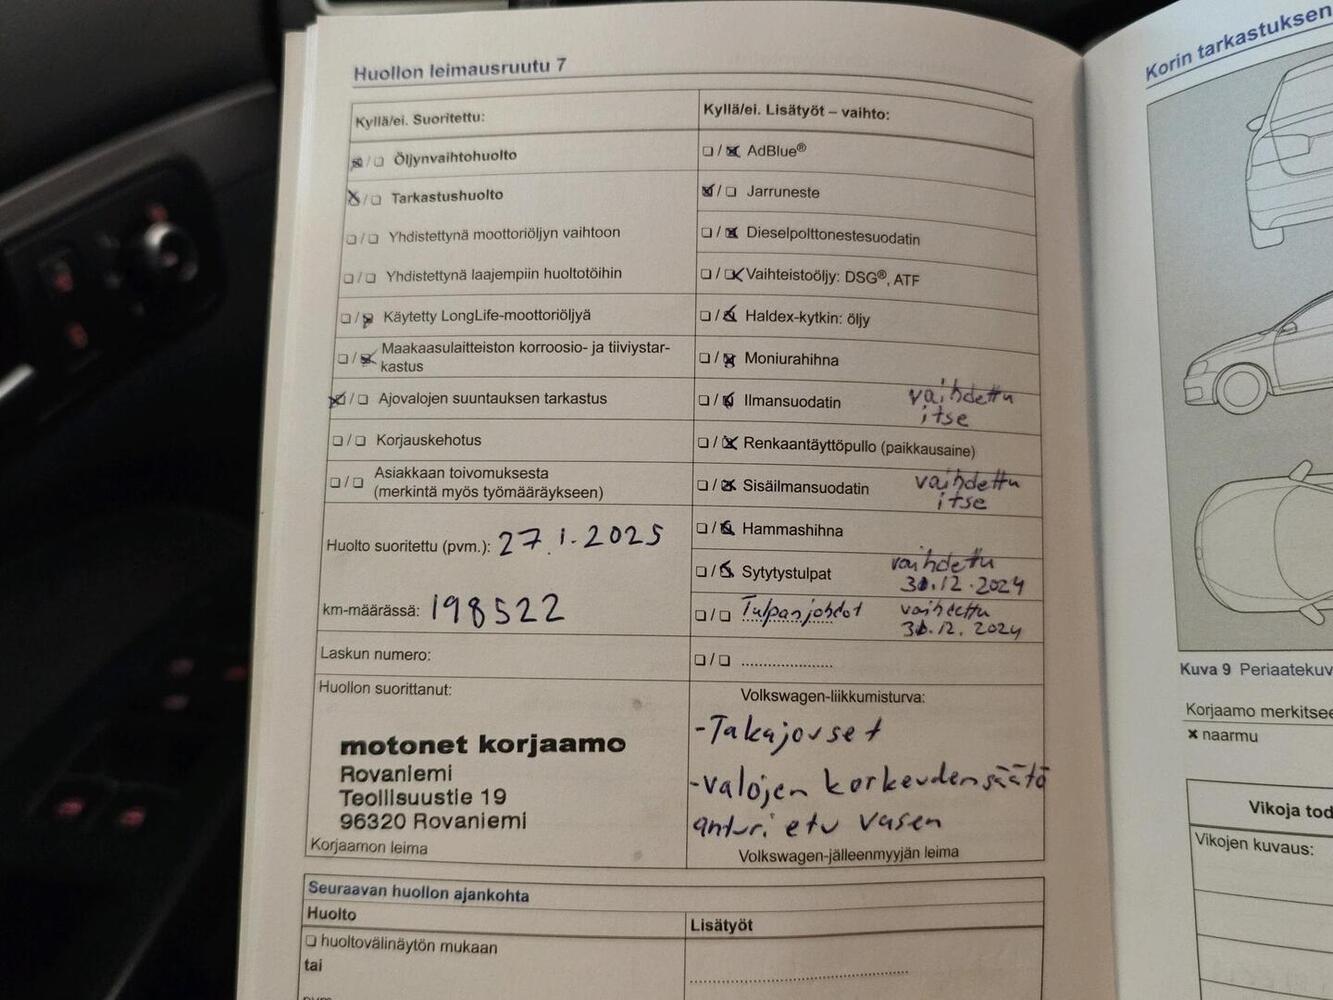 Huollon leimausruutu 7
Kyllä/ei. Suoritettu:
Öljynvaihtohuolto
Tarkastushuolto
Yhdistettynä moottoriöljyn vaihtoon
Yhdistettynä laajempiin huoltotöihin
Käytetty LongLife-moottoriöljyä
Maakaasulaitteiston korroosio- ja tiiviystar-
kastus
Ajovalojen suuntauksen tarkastus
Korjauskehotus
Asiakkaan toivomuksesta
(merkintä myös työmääräykseen)
Huolto suoritettu (pvm.): 27.1.2025
km-määrässä: 198522
Laskun numero:
Huollon suorittanut:
motonet korjaamo
Rovaniemi
Teollisuustie 19
96320 Rovaniemi
Korjaamon leima
Kyllä/ei. Lisätyöt – vaihto:
AdBlue®
Jarruneste
Dieselpolttonestesuodatin
Vaihteistoöljy: DSG®, ATF
Haldex-kytkin: öljy
Moniurahihna
Ilmansuodatin vaihdettu
itse
Renkaantäyttöpullo (paikkausaine)
Sisäilmansuodatin vaihdettu
itse
Hammashihna
Sytytystulpat vaihdettu
30.12.2024
Tulpanjohdot vaihdettu
30.12.2024
Volkswagen-liikkumisturva:
-Takajouset
-valojen korkeudensäätö
anturi etu vasen
Volkswagen-jälleenmyyjän leima
Seuraavan huollon ajankohta
Huolto
Lisätyöt
huoltovälinäytön mukaan
tai
Korin tarkastuksen
Kuva 9 Periaatekuv
Korjaamo merkitsee
× naarmu
Vikoja tod
Vikojen kuvaus: